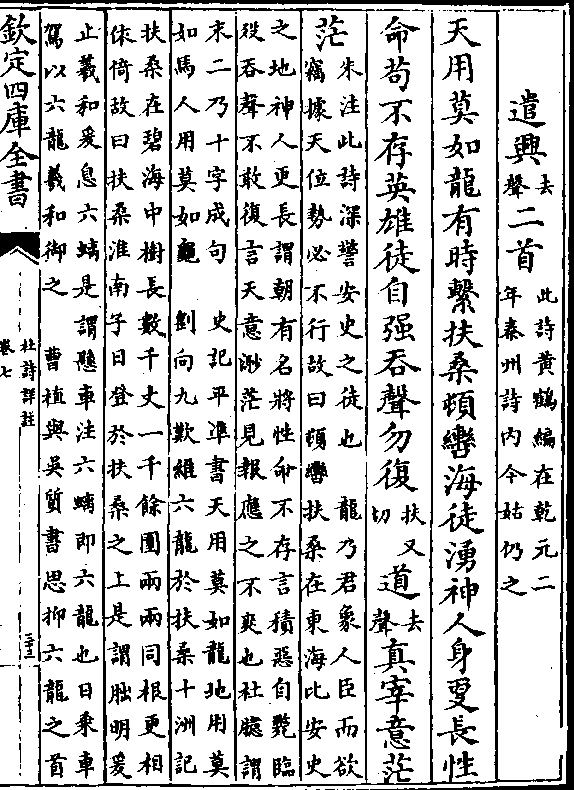 遣興去聲二首此詩黃鶴編在乾元二年秦州詩內今姑仍之
天用莫如龍有時繫扶桑頓轡海徒湧神人身更長性
命苟不存英雄徒自强吞聲勿復扶又切道去聲真宰意茫
茫朱注此詩深警安史之徒也　龍乃君象人臣而欲
竊據天位勢必不行故曰頓轡扶桑在東海比安史
之地神人更長謂朝有名將性命不存言積惡自斃臨
殁吞聲不敢復言天意渺茫見報應之不爽也杜臆謂
末二乃十字成句　史記平準書天用莫如龍地用莫
如馬人用莫如龜　劉向九歎維六龍於扶桑十洲記
扶桑在碧海中樹長數千丈一千餘圍兩兩同根更相
依倚故曰扶桑淮南子日登於扶桑之上是謂朏明爰
止羲和爰息六螭是謂懸車注六螭即六龍也日乘車
駕以六龍羲和御之　曹植與吳質書思抑六龍之首
欽定四庫全書
杜詩詳註
卷七
二十三